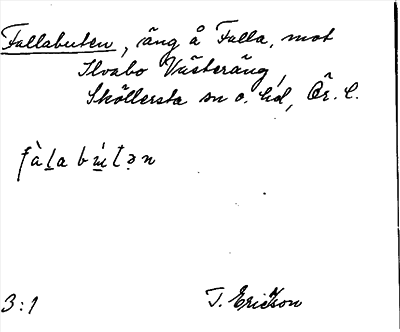 Fallabuten, äng å Falla, mot
Ilvabo Västeräng,
Sköllersta sn o. hd, Ör. l.
fàl̠a bɯ́tən
3:1 T. Ericson